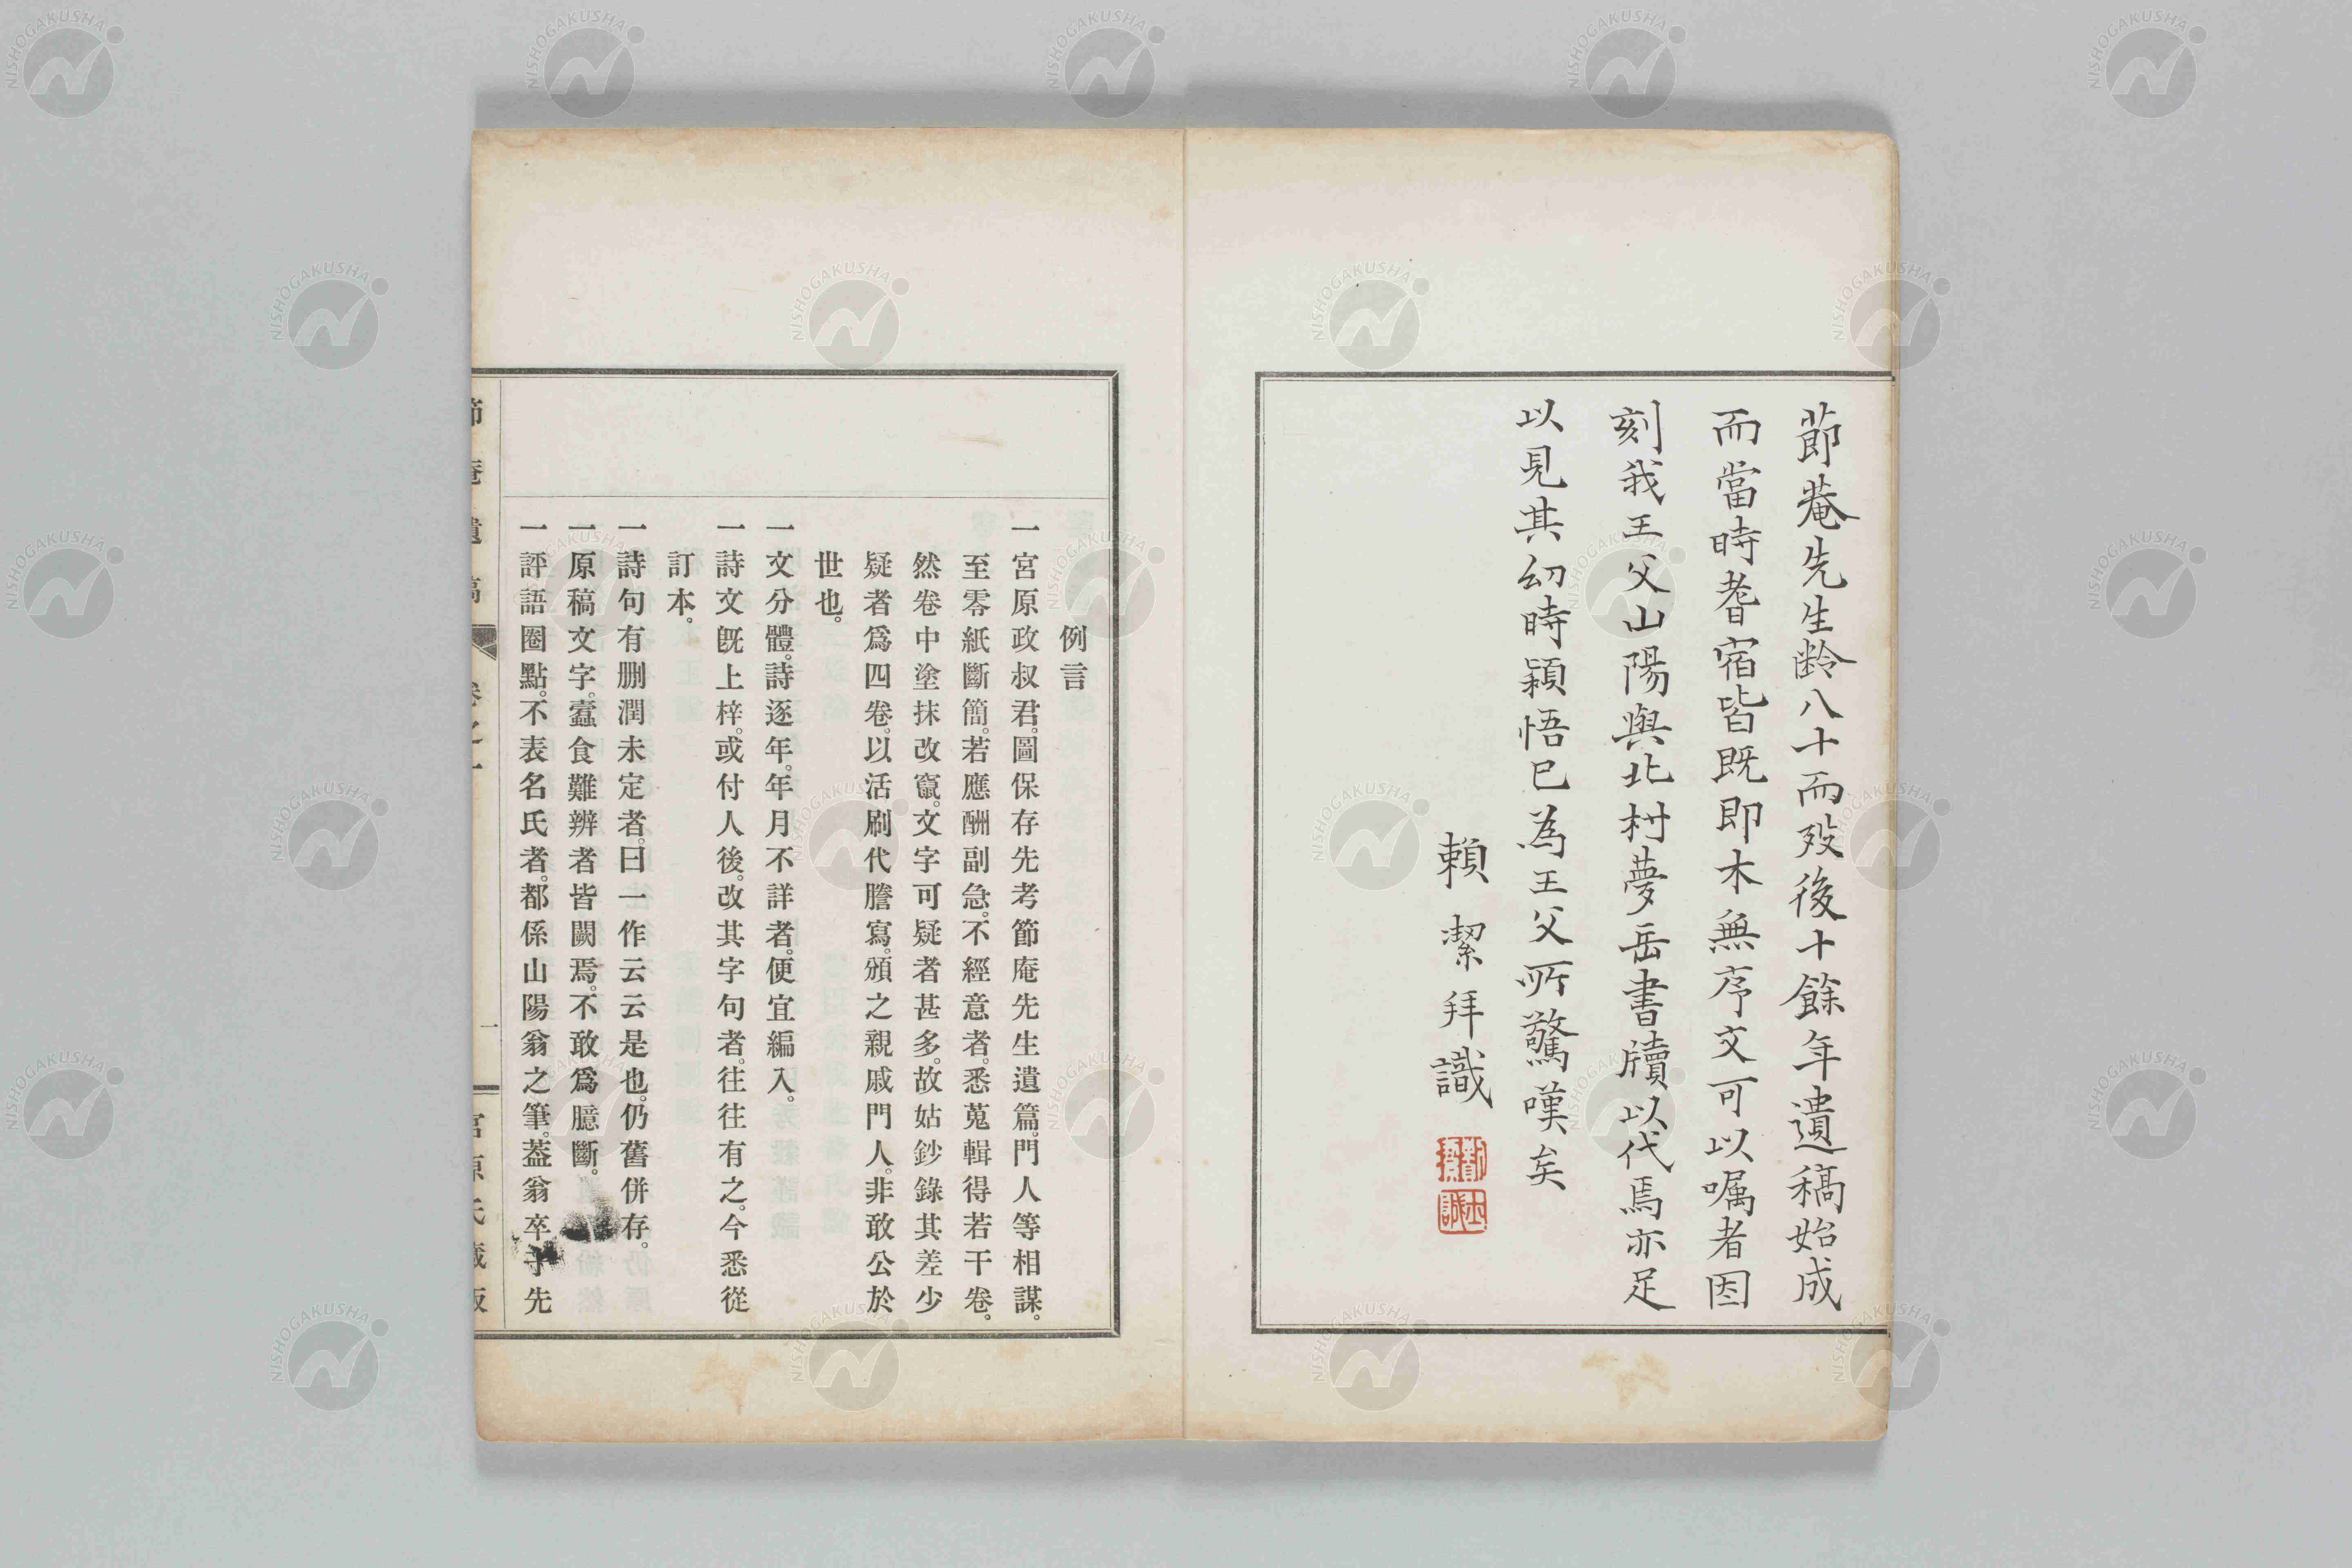 節菴先生齢八十而歿後十餘年遺稿始成
而當時耆宿皆既即木無序文可以嘱者因
刻我王父山陽與北村夢岳書牘以代焉亦足
以見其幼時穎悟已為王父所驚嘆矣
頼潔拜識
例言
一宮原政叔君。圖保存先考節庵先生遺篇。門人等相謀。
至零紙斷簡。若應酬副急。不經意者。悉蒐輯得若干卷。
然卷中塗抹改竄。文字可疑者甚多。故姑鈔錄其差少
疑者爲四卷。以活刷代謄寫。頒之親戚門人。非敢公於
世也。
一文分體。詩逐年。年月不詳者。便宜編入。
一詩文既上梓。或付人後。改其字句者。往往有之。今悉從
訂本。
一詩句有删潤未定者。曰一作云云是也。仍舊併存。
一原稿文字。蠹食難辨者皆闕焉。不敢爲臆斷。
一評語圈點。不表名氏者。都係山陽翁之筆。葢翁卒于先
節庵遺稿 卷之一 一 宮原氏藏版
NISHOGAKUSHA